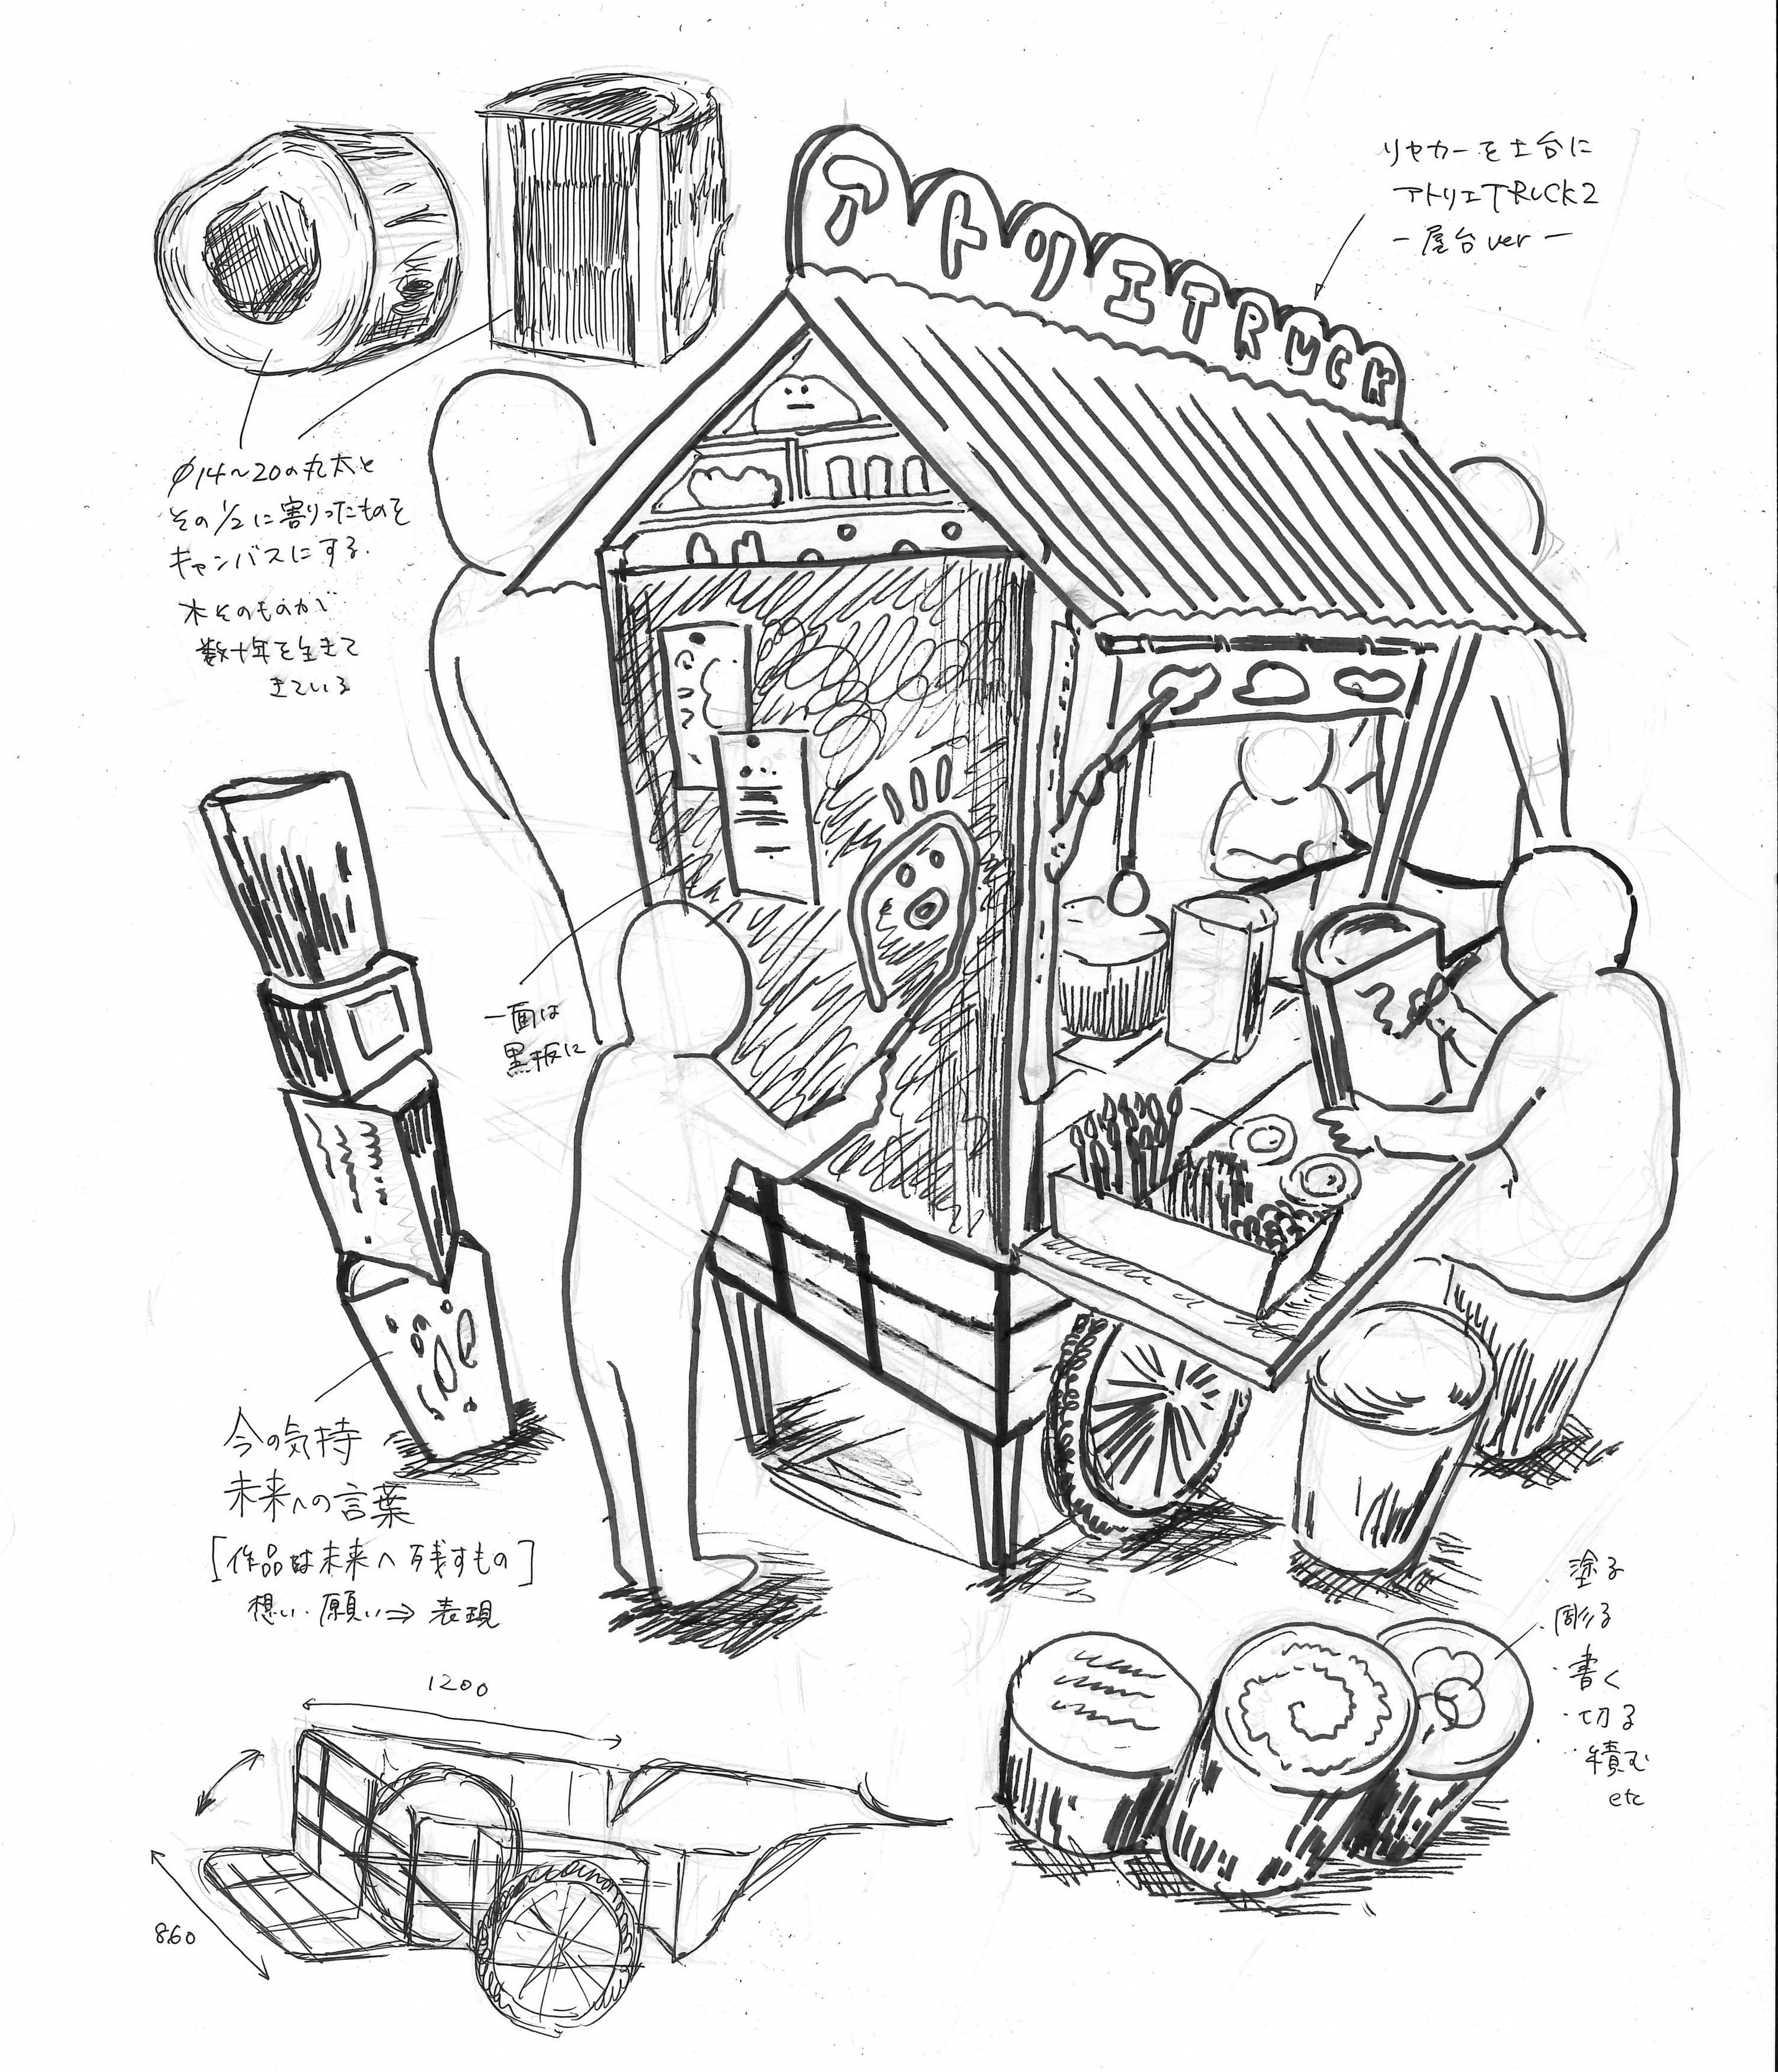 アトリエTRUCK
リヤカーを土台に
アトリエTRUCK2
ー屋台verー
φ14〜20の丸太と
その1/2に割りったものを
キャンバスにする.
木そのものが
数十年を生きて
きている
一面は
黒板に
今の気持
未来への言葉
[作品は未来へ残すもの]
想い・願い⇒表現
・塗る
・彫る
・書く
・切る
・積む
etc
1200
860